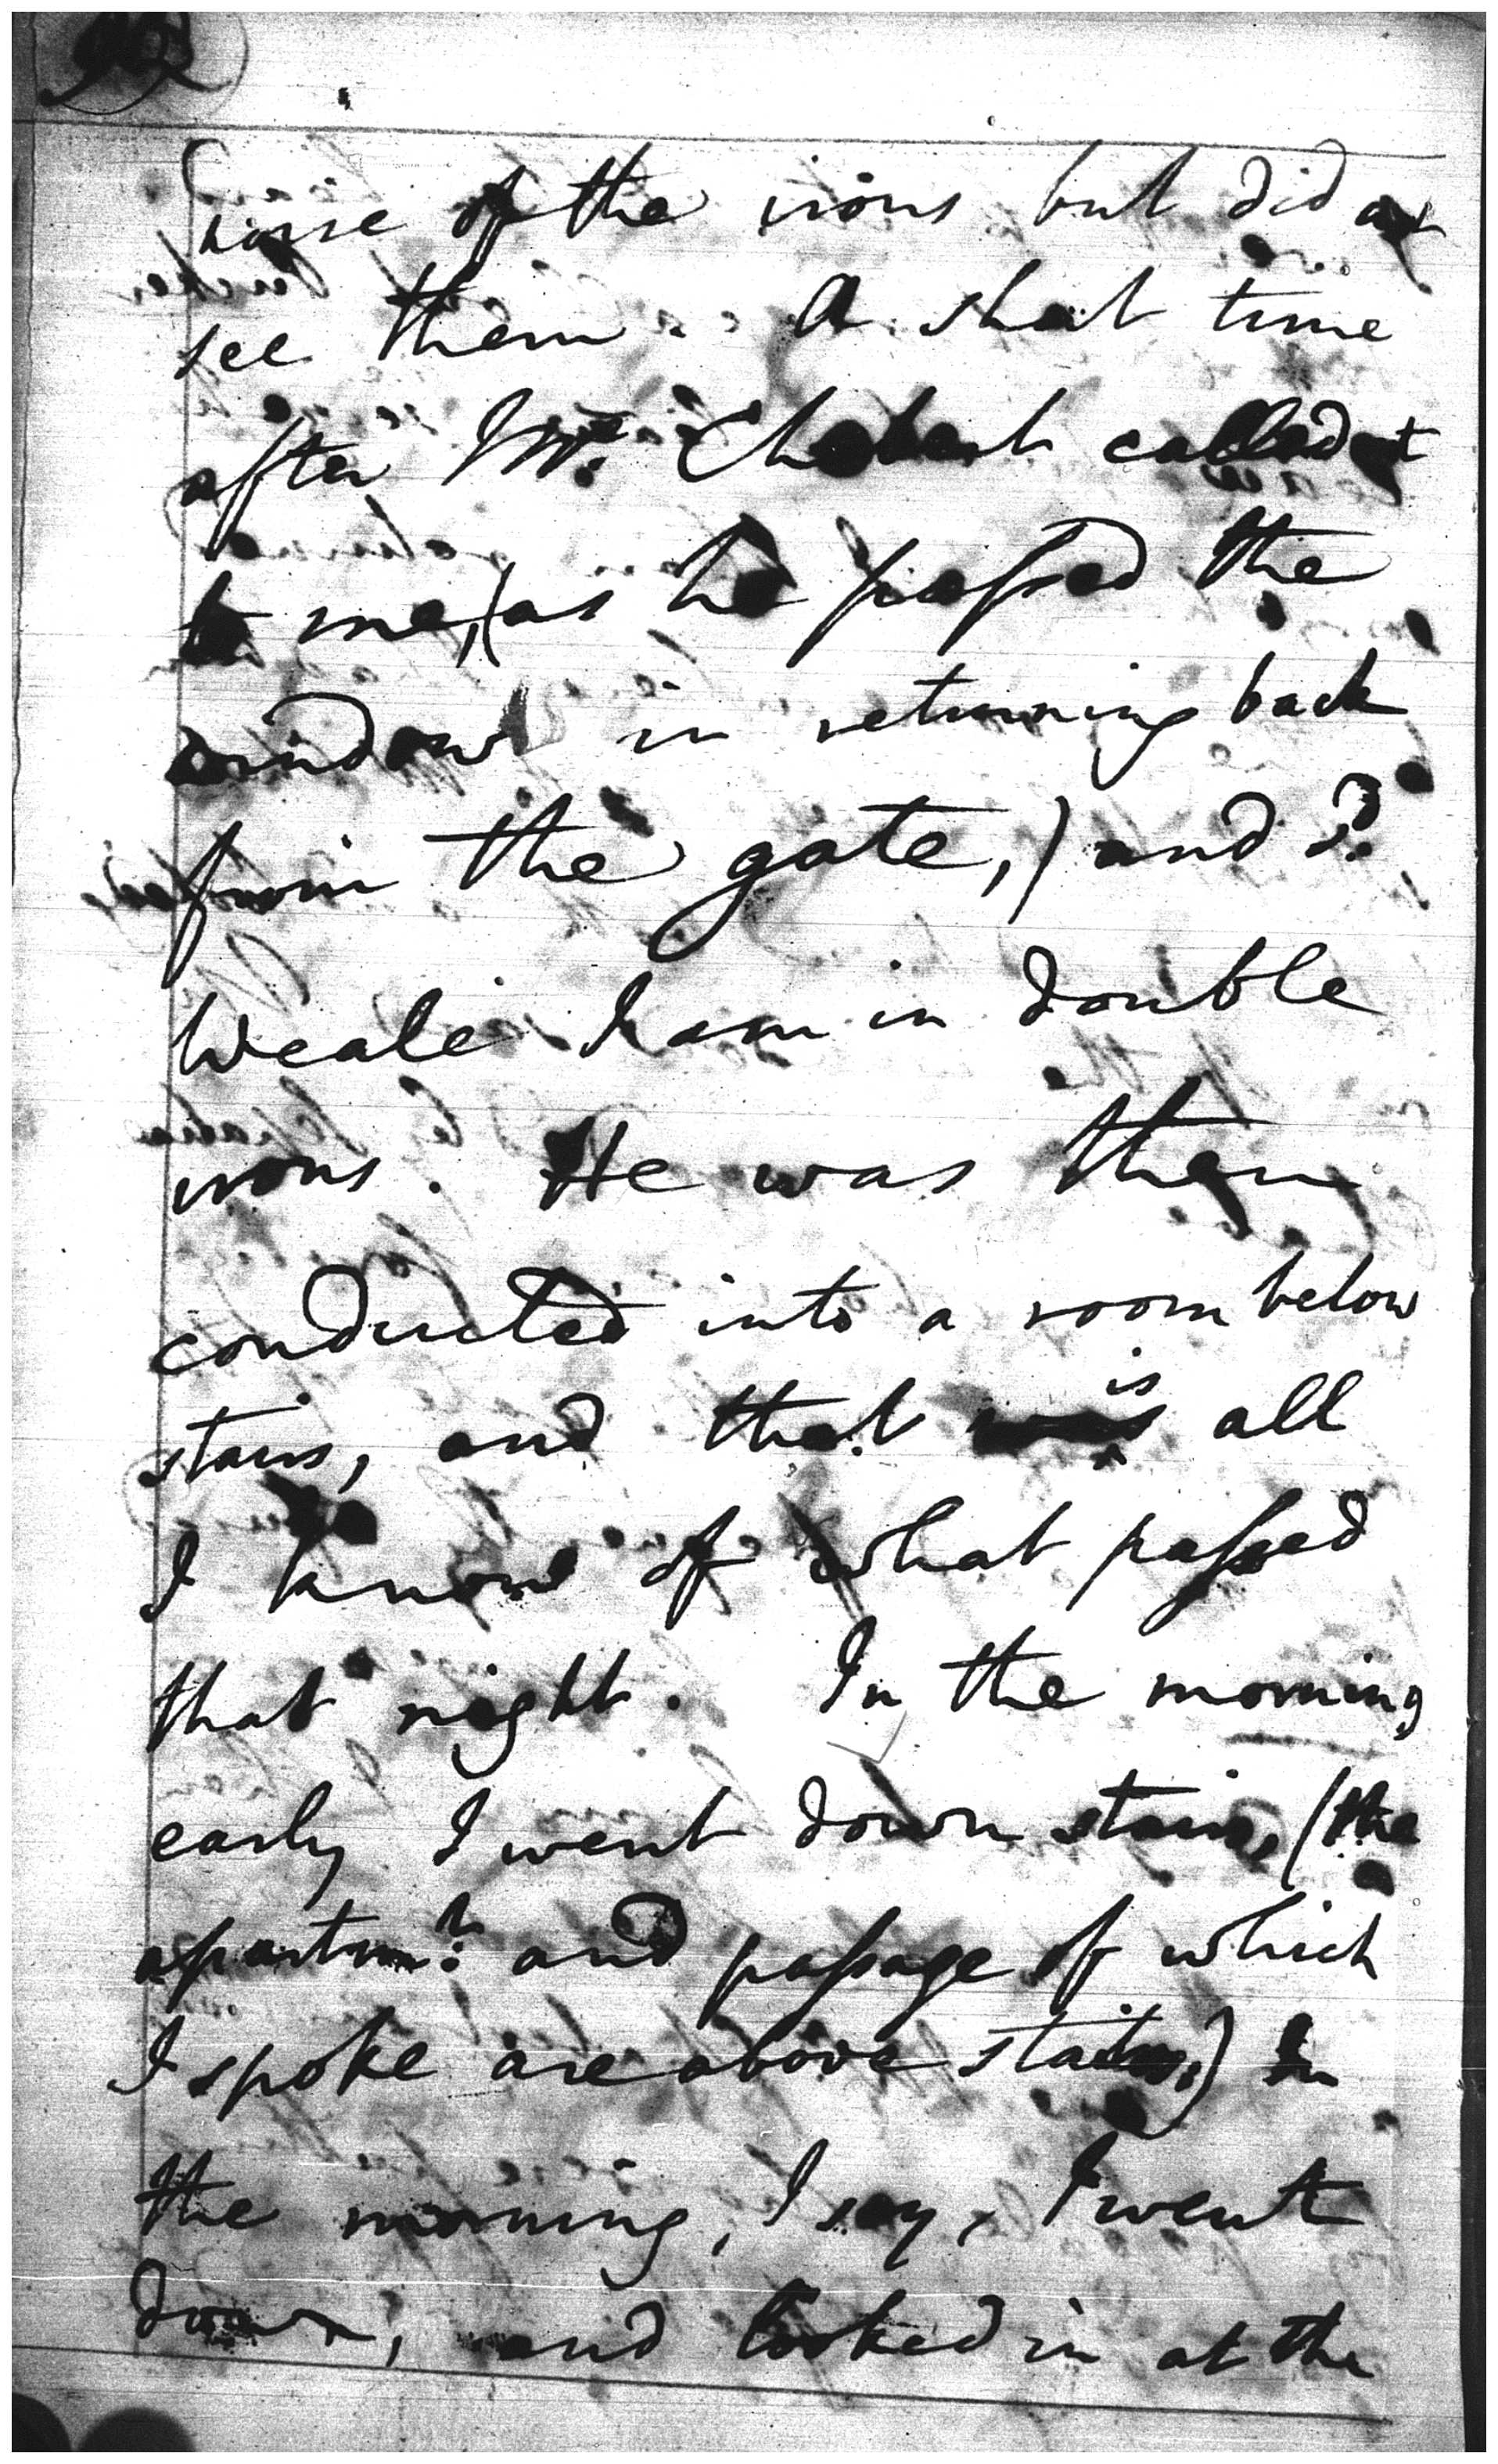 noise of the irons but did not
see them. A short time
after Mr. Chabert called out
to me, (as he passed the
window in returning back
from the gate,) and sd.
Weale I am in double
irons. He was then
conducted into a room below
stairs, and that is all
I know of what passed
that night. In the morning
early I went down stairs, (the
apartmt. and passage of which
I spoke are above stairs,) In
the morning, I say, I went
down, and looked in at the